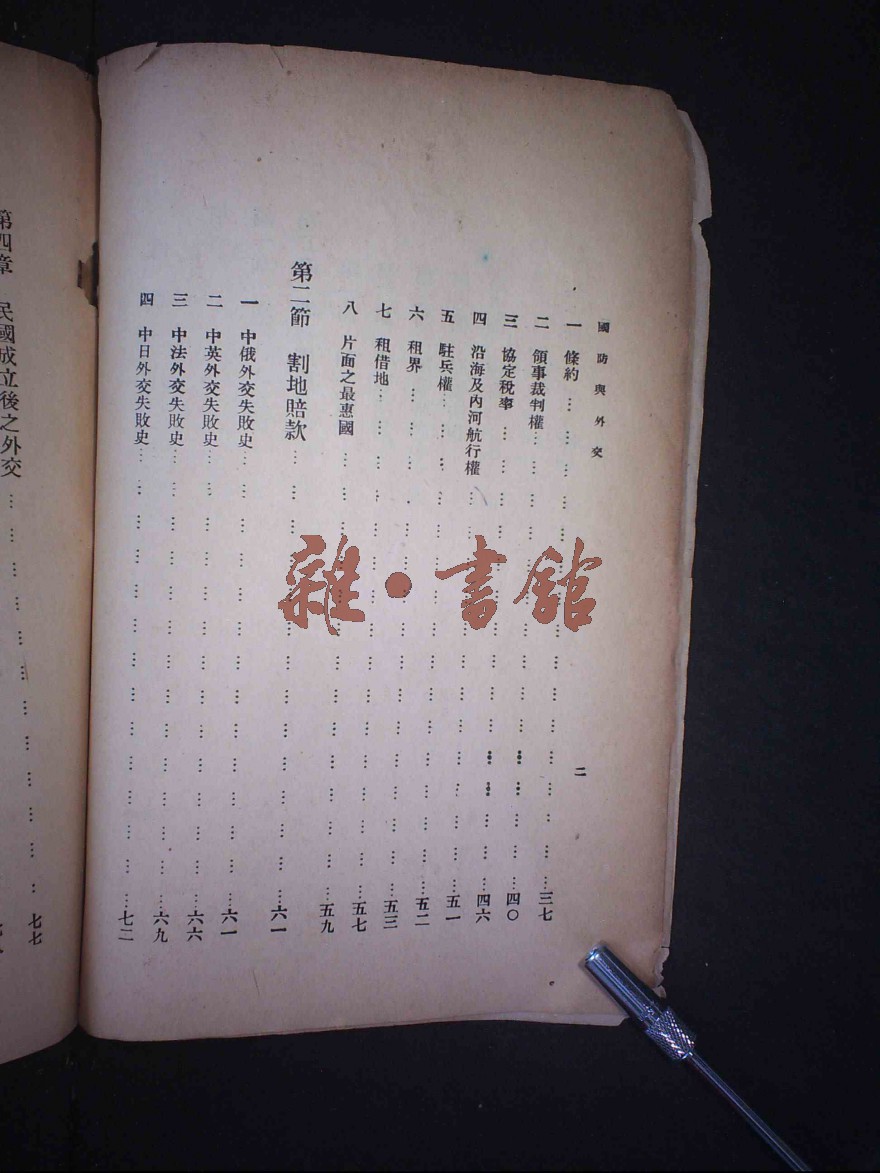 國防與外交
二
一 條約 … … … … 三七
二 領事裁判權 … … … … 四〇
三 協定稅率 … … … … 四六
四 沿海及內河航行權 … … … … 五一
五 駐兵權 … … … … 五二
六 租界 … … … … 五三
七 租借地 … … … … 五七
八 片面之最惠國 … … … … 五九
第二節 割地賠款 … … … … 六一
一 中俄外交失敗史 … … … … 六一
二 中英外交失敗史 … … … … 六六
三 中法外交失敗史 … … … … 六九
四 中日外交失敗史 … … … … 七二
第四章 民國成立後之外交 … … … … 七七
雜·書館